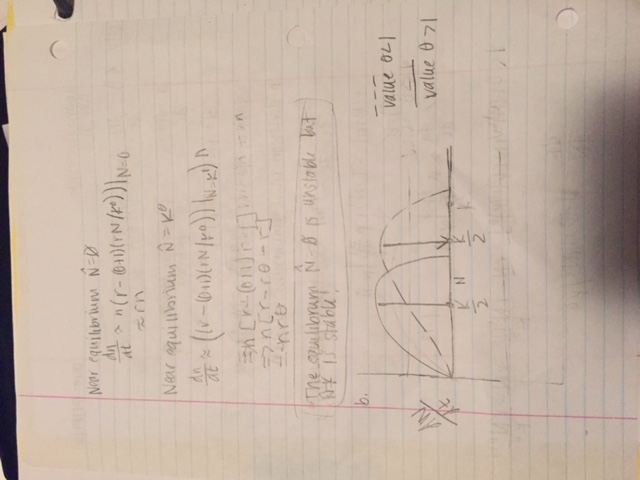 Near equilibrium N̂=0
dn/dt ≈ n(r-(θ+1)(rN/K^θ))|N=0
≈ rn
Near equilibrium N̂=K^θ
dn/dt ≈ ((r-(θ+1)(rN/K^θ))|N=K) n
=> n[r-(θ+1)r]
=> n[r-rθ-r]
= -nrθ
The equilibrum N̂=0 is unstable but
N=K is stable!
b.
dN/dt
K/2 N K/2 K
value θ<1
value θ>1